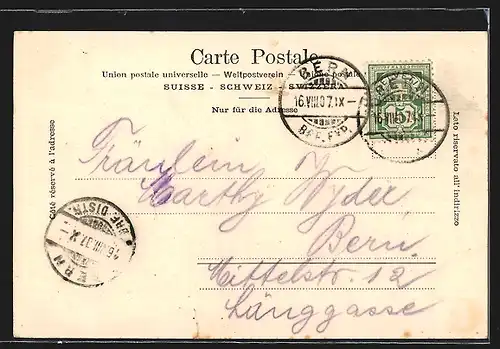 Carte Postale
Union postale universelle — Weltpostverein — Unione postale
SUISSE - SCHWEIZ - SVIZZERA
Nur für die Adresse
Côté réservé à l'adresse
Lato riservato all' indirizzo
BERN
16.VIII.07.IX
BRF. EXP.
BERN
16.VIII.07.IX
Fräulein
Marthy Wyder,
Bern
Mittelstr. 12
Länggasse
BERN
16.VIII.07.X
BRF. DISTR.